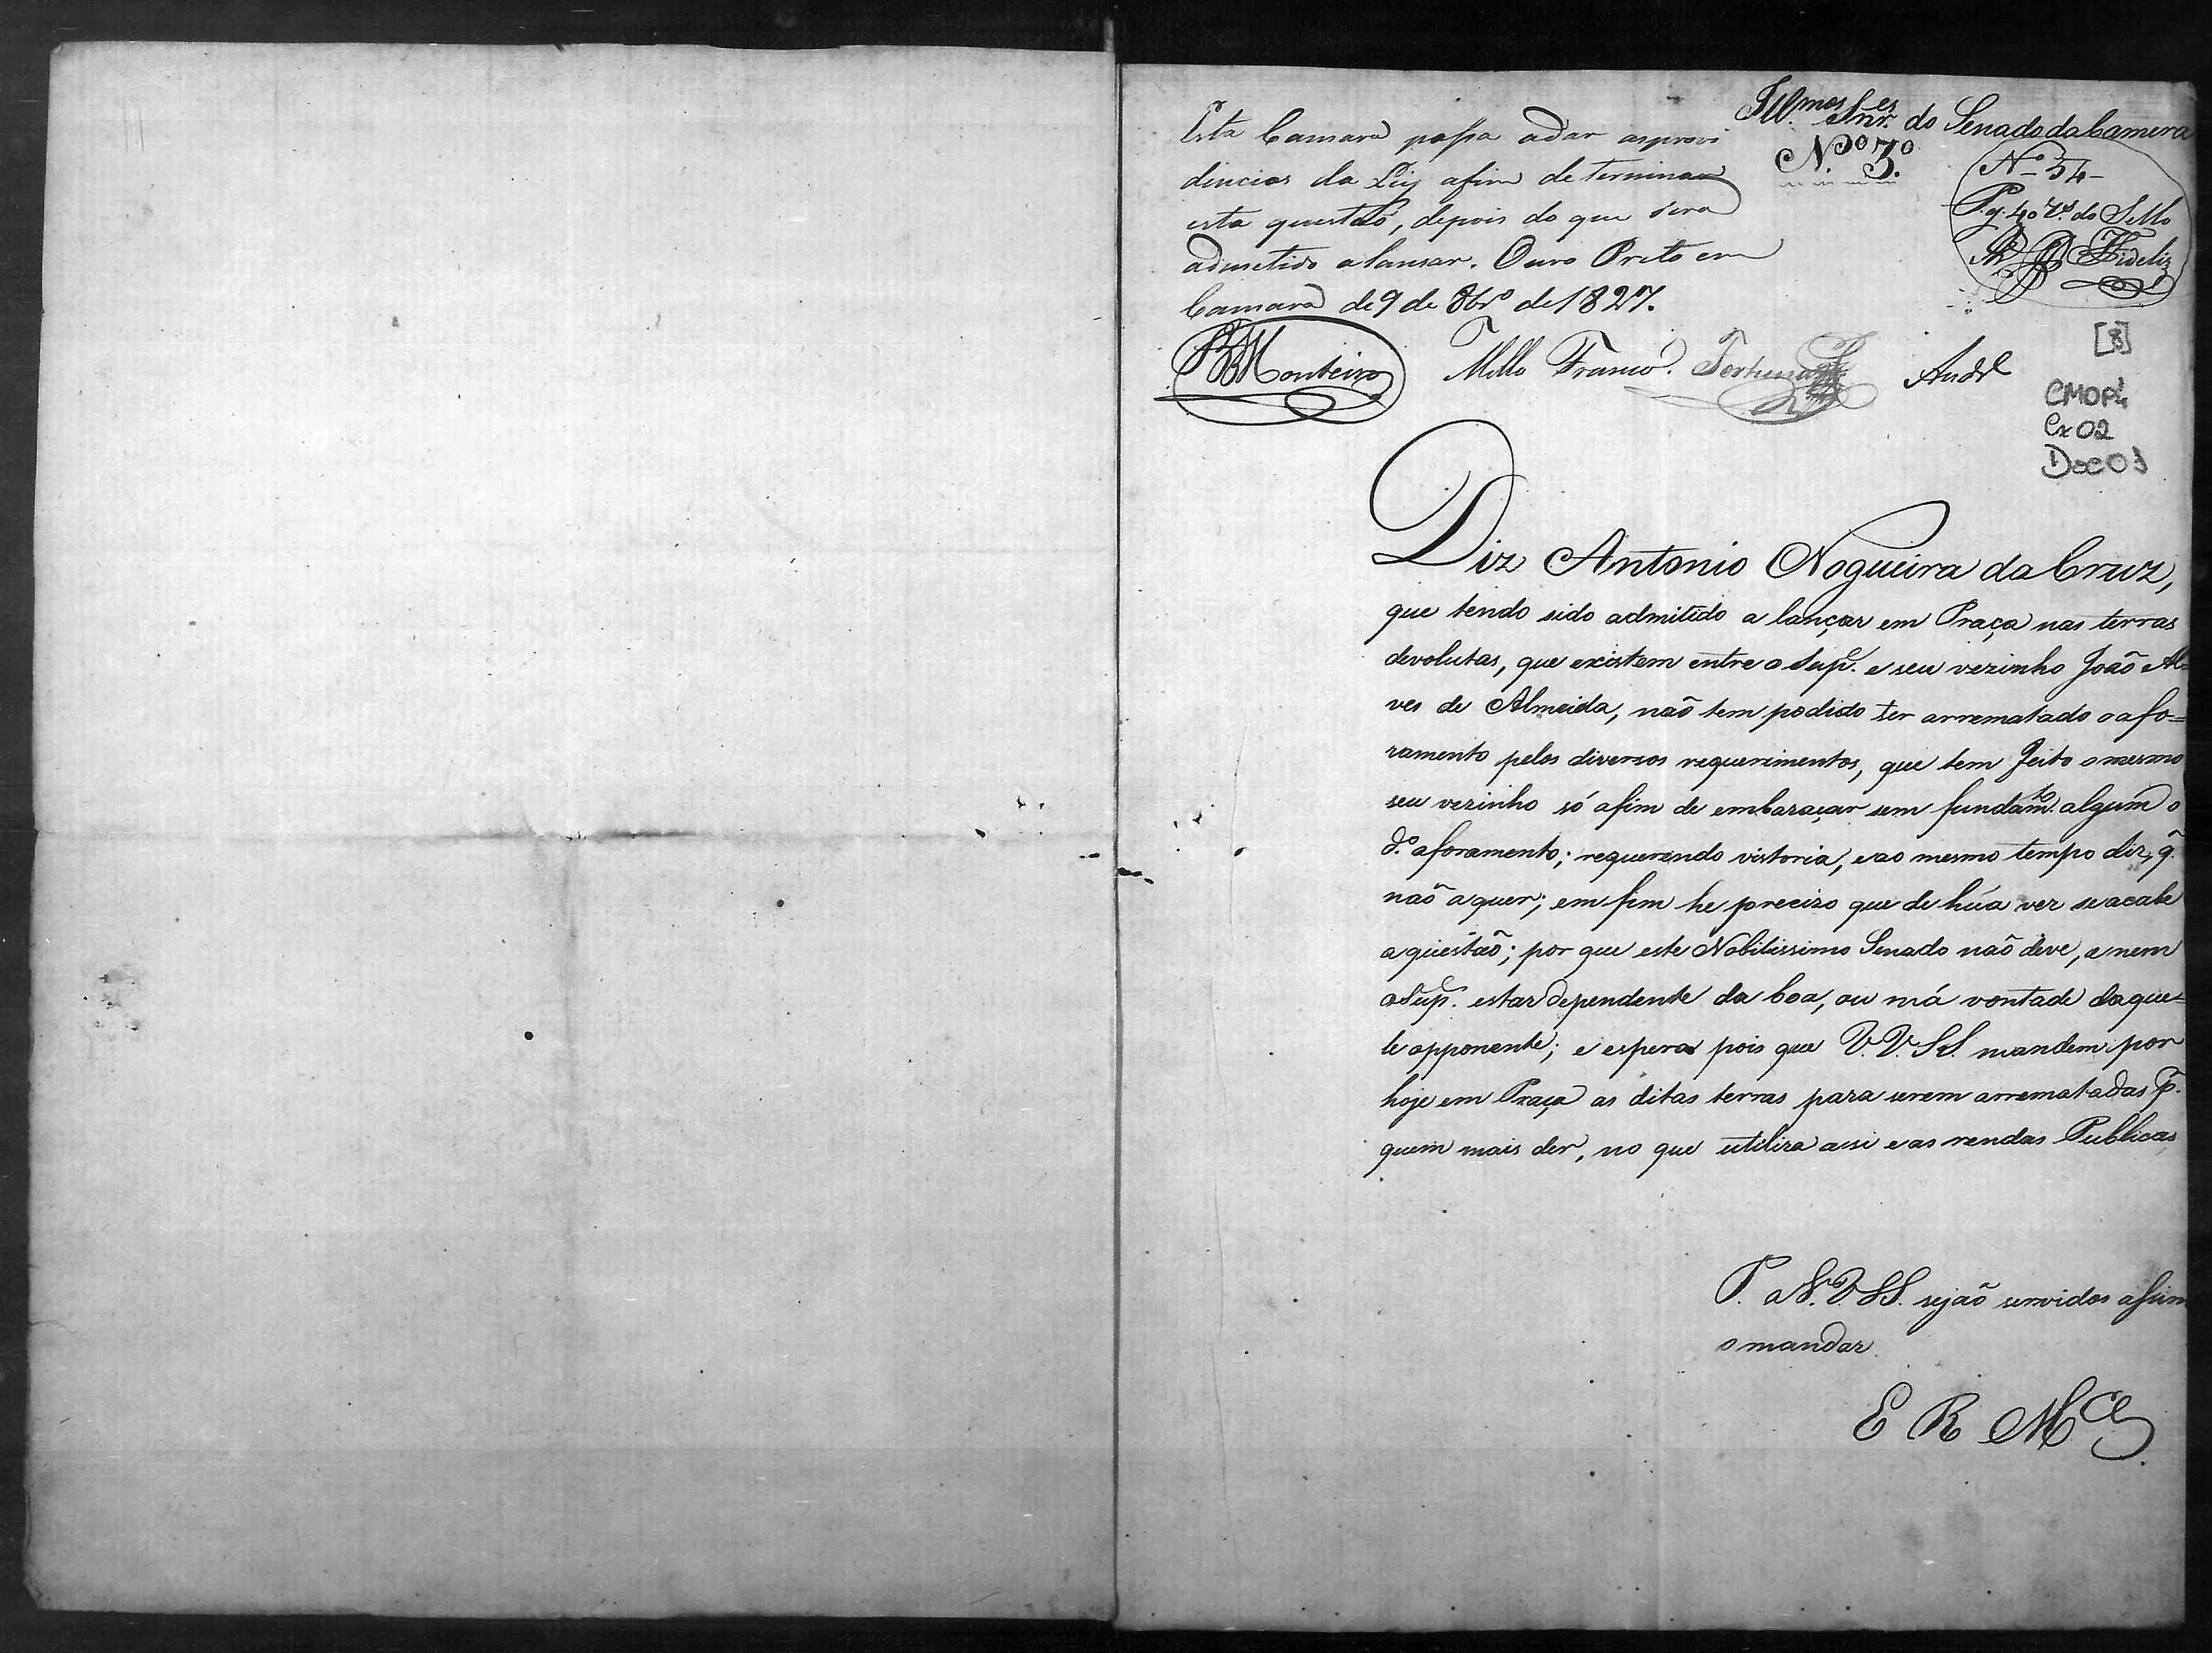 Ill.mos Snr.es do Senado da Camera
N.o 3.o
N.o 54
Pg. 40 r.s do Sello
Fideliz
Esta Camara passa a dar as provi
dencias da Ley afim de terminar
esta questaõ, depois do que sera
admetido a lansar. Ouro Preto em
Camara de 9 de 8br.o de 1827.
Monteiro Mello Franco. Fortunato Andr.e
[8]
CMOP
Cx 02
Doc 01
Diz Antonio Nogueira da Cruz,
que tendo sido admitido a lançar em Praça nas terras
devolutas, que existem entre o Sup.e e seu vezinho Joaõ Al=
ves de Almeida, naõ tem podido ter arrematado o afo=
ramento pelos diversos requerimentos, que tem feito o mesmo
seu vezinho só afim de embaraçar sem fundam.to algum o
d.o aforamento; requerendo vistoria, e ao mesmo tempo diz, q̃
naõ a quer; em fim he precizo que de hũa vez se acabe
a questaõ; por que este Nobilissimo Senado naõ deve, e nem
o Sup.e estar dependente da boa, ou má vontade daque=
le opponente; e espera pois que V.V. SS. mandem por
hoje em Praça as ditas terras para serem arrematadas p.
quem mais der, no que utiliza a si e as rendas Publicas
P. a V.V. SS. sejaõ servidos assim
o mandar
E R M.ce